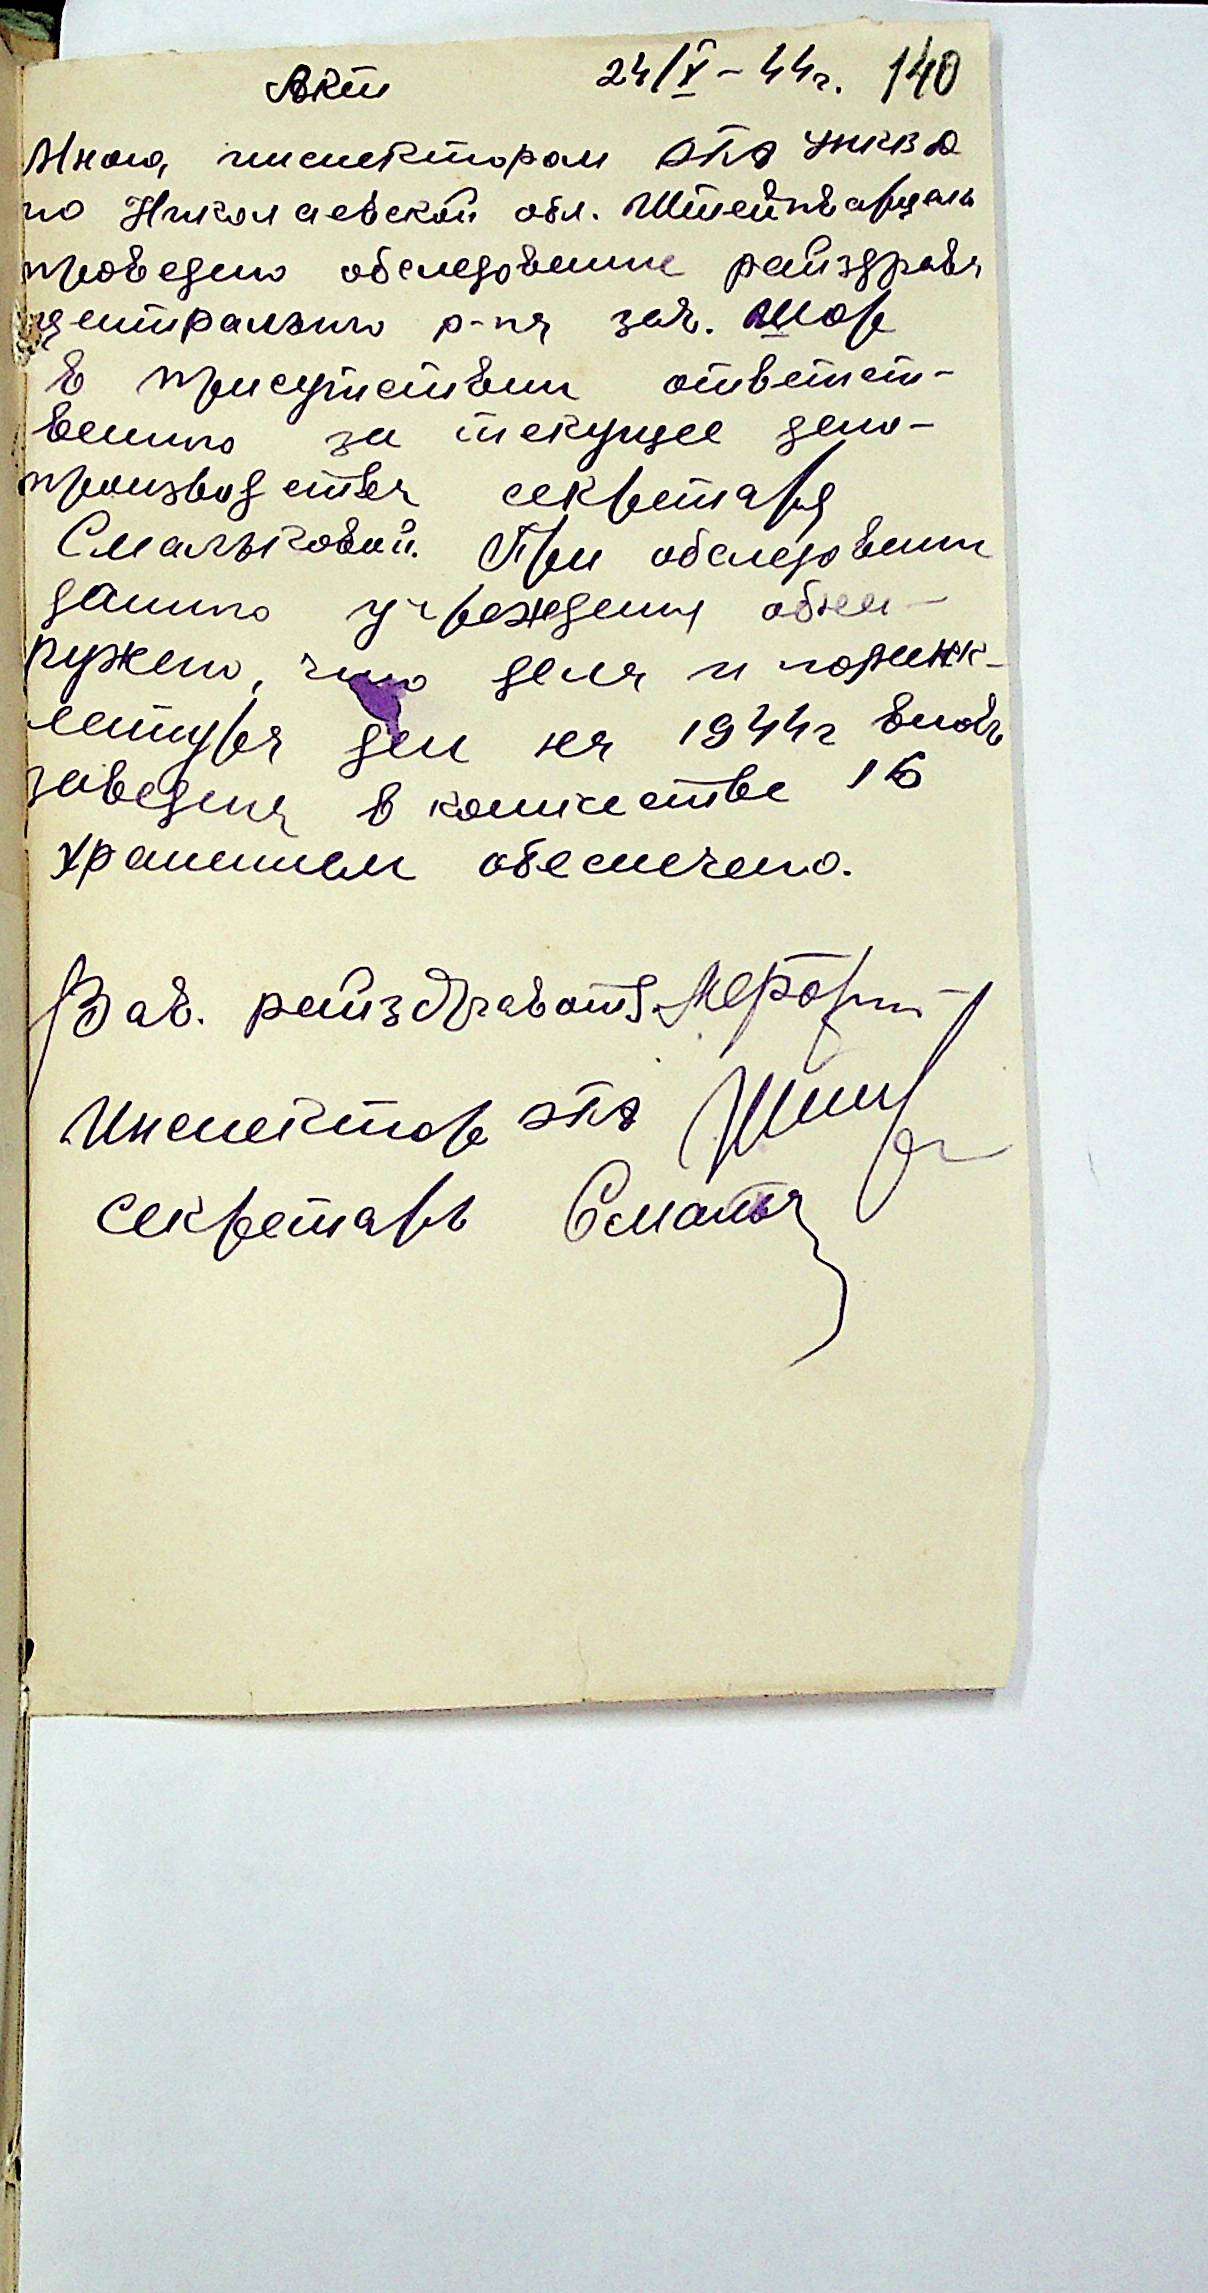 Акт 24/X – 44г. 140
Мною, инспектором ОГА УНКВД
по Николаевской обл. Штейнварцель
проведено обследование райздрава
центрального р-на зав.
в присутствии ответст-
венного за текущее дело-
производства секретаря
Смальковой. При обследовании
данного учреждения обна-
ружено, что дела и номенк-
латура дел на 1944г вновь
заведена в количестве 16
хранением обеспечено.
Зав. райздравотд.
Инспектор ОГА
секретарь